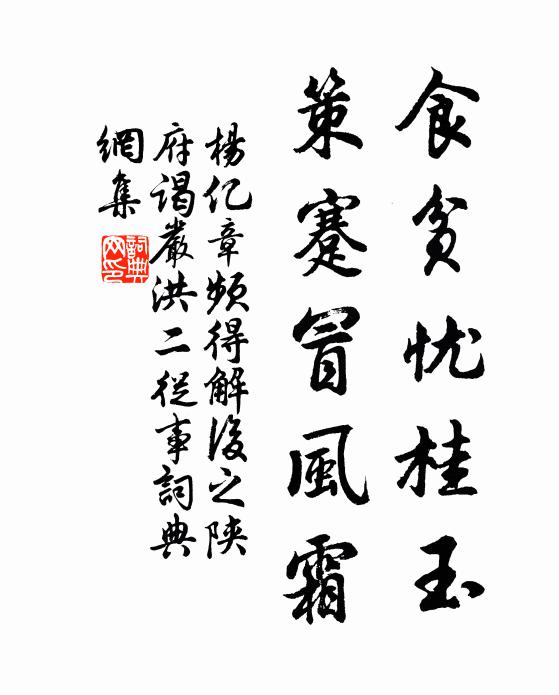 食贫忧桂玉
策蹇冒風霜
楊亿章頻得解後之陝
府謁嚴洪二從事詞典
網集
詞典网印